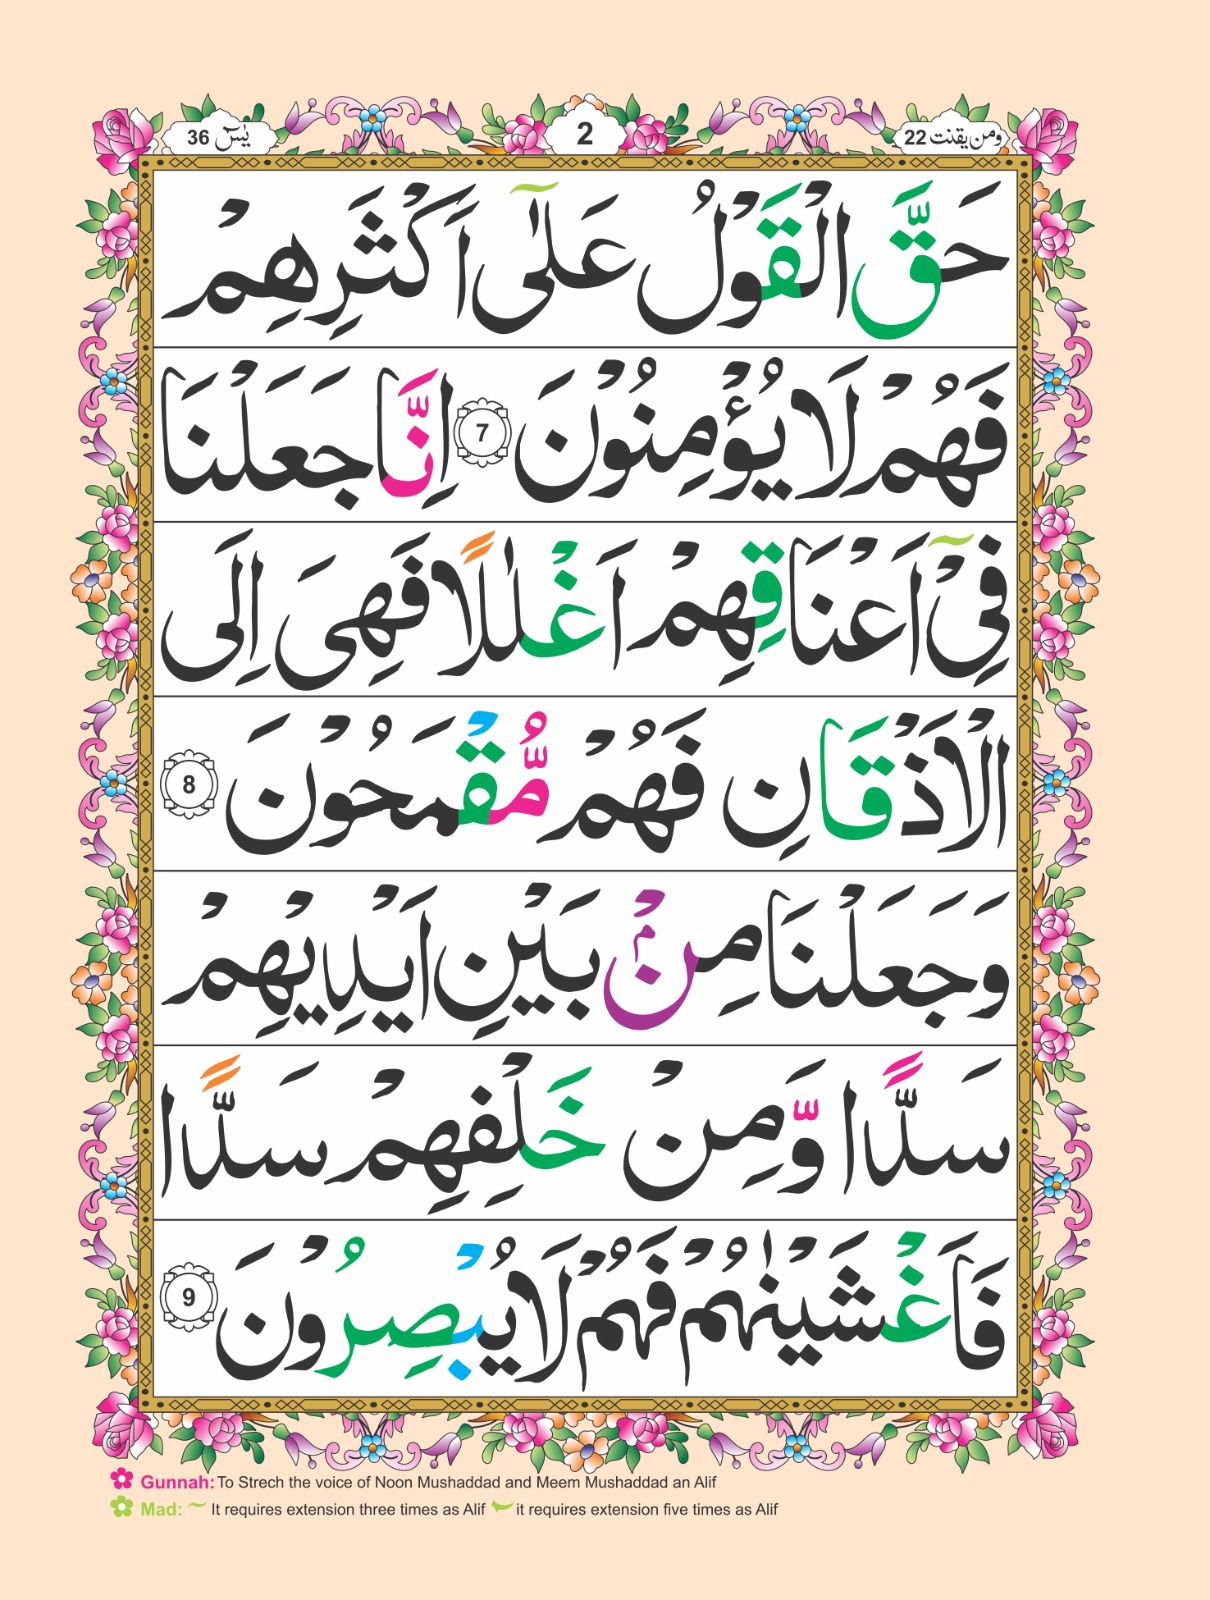 یٰسٓ 36
2
ومن یقنت 22
حَقَّ الْقَوْلُ عَلٰٓى اَكْثَرِهِمْ
فَهُمْ لَا يُؤْمِنُوْنَ 7 اِنَّا جَعَلْنَا
فِیْۤ اَعْنَاقِهِمْ اَغْلٰلًا فَهِیَ اِلَی
الْاَذْقَانِ فَهُمْ مُّقْمَحُوْنَ 8
وَجَعَلْنَا مِنْۢ بَيْنِ اَيْدِيْهِمْ
سَدًّا وَّمِنْ خَلْفِهِمْ سَدًّا
فَاَغْشَيْنٰهُمْ فَهُمْ لَا يُبْصِرُوْنَ 9
Gunnah: To Strech the voice of Noon Mushaddad and Meem Mushaddad an Alif
Mad: ~ It requires extension three times as Alif it requires extension five times as Alif